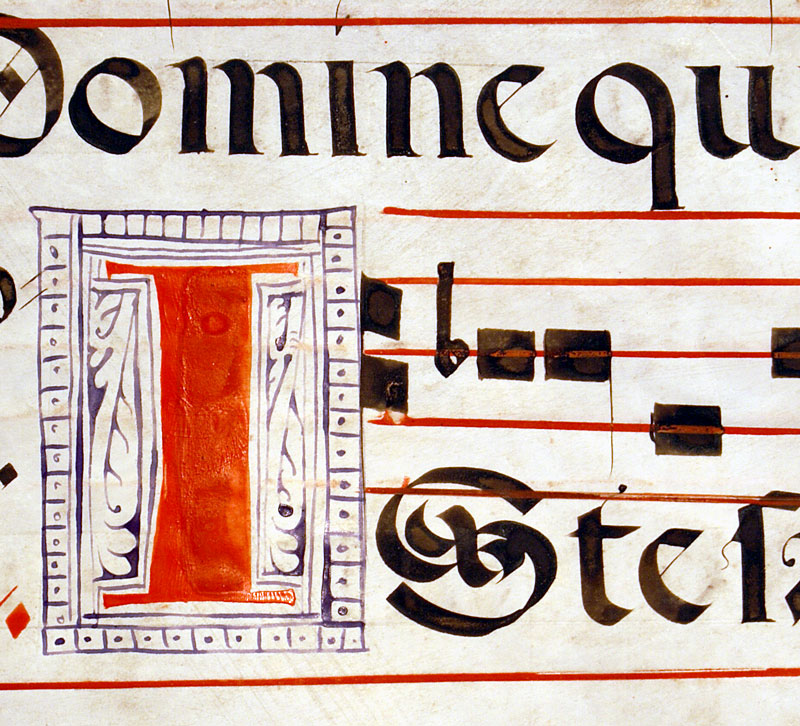 Domine qu
ISte